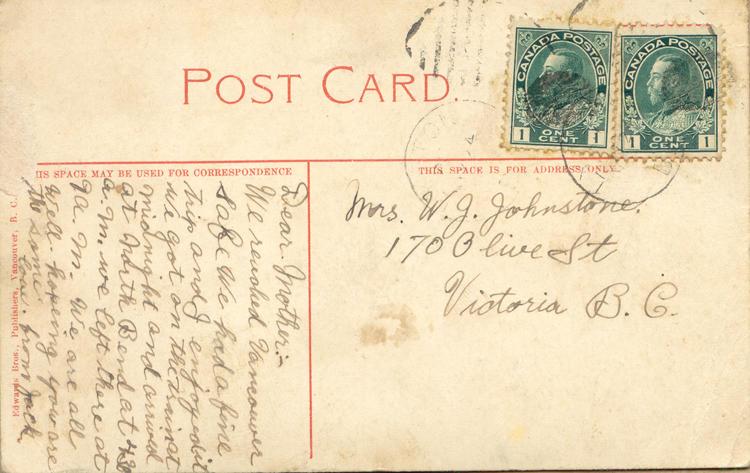 POST CARD.
CANADA POSTAGE
1 ONE CENT 1
CANADA POSTAGE
1 ONE CENT 1
THIS SPACE MAY BE USED FOR CORRESPONDENCE
THIS SPACE IS FOR ADDRESS ONLY
Mrs. W. J. Johnstone.
170 Olive St
Victoria B. C.
Dear Mother:-
We reached Vancouver
safe. We had a fine
trip and I enjoyed it
we got on the train at
midnight and arrived
at North Bend at
a. m. we left there at
A. M. We are all
well hoping you are
the same. from Jack
Edwards Bros., Publishers, Vancouver, B. C.